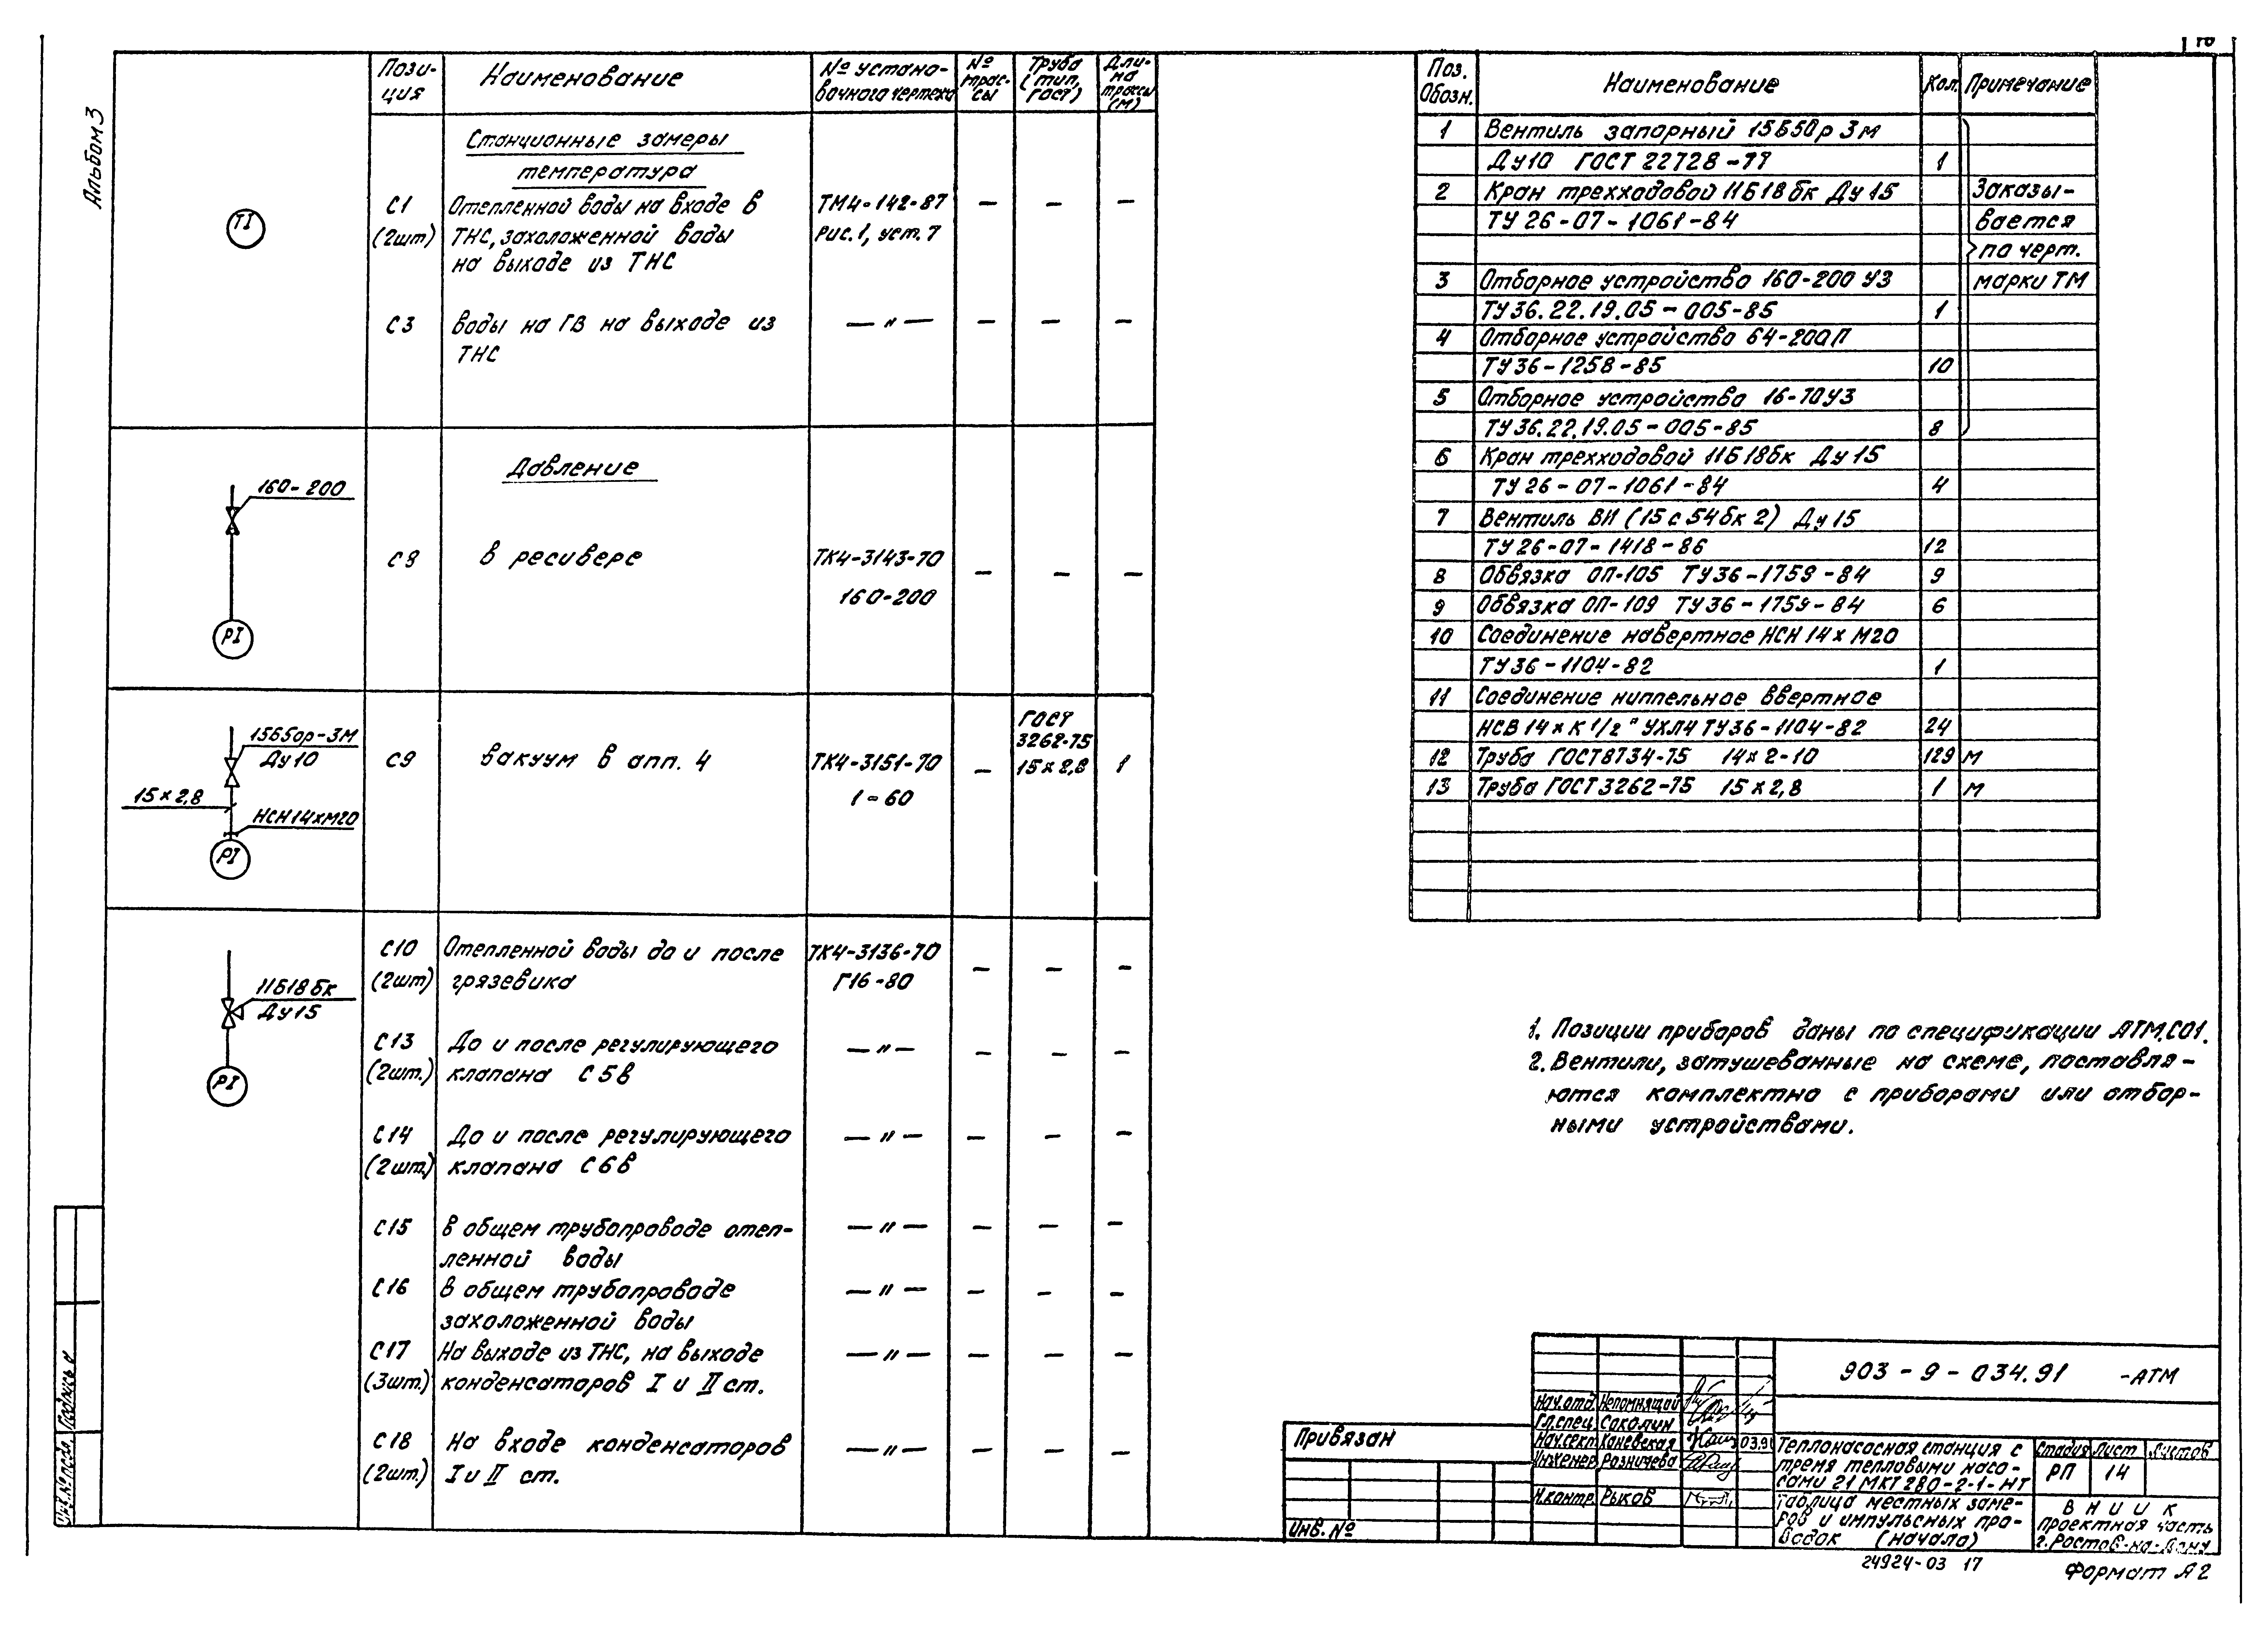 Альбом 3
Пози-ция Наименование № устано-вочного чертежа № трас-сы Труба (тип, ГОСТ) Дли-на трассы (м)
Станционные замеры
температура
TI
С1 Отепленной воды на входе в ТМ4-142-87 — — —
(2шт) ТНС, захоложенной воды Рис. 1, уст. 7
на выходе из ТНС
С3 воды на ГВ на выходе из —"— — — —
ТНС
Давление
160-200
С8 в ресивере ТК4-3143-70 — — —
160-200
PI
15Б50р-3м
Ду10
15×2,8
НСН14×М20
PI
С9 вакуум в апп. 4 ТК4-3151-70 — ГОСТ 3262-75 15×2,8 1
1-60
11Б18бк
Ду15
PI
С10 Отепленной воды до и после ТК4-3136-70 — — —
(2шт) грязевика Г16-80
С13 До и после регулирующего —"— — — —
(2шт.) клапана С5в
С14 До и после регулирующего —"— — — —
(2шт.) клапана С6в
С15 в общем трубопроводе отеп- —"— — — —
ленной воды
С16 в общем трубопроводе —"— — — —
захоложенной воды
С17 На выходе из ТНС, на выходе —"— — — —
(3шт.) конденсаторов I и II ст.
С18 На входе конденсаторов —"— — — —
(2шт.) I и II ст.
Поз. Обозн. Наименование Кол. Примечание
1 Вентиль запорный 15Б50р 3м
Ду10 ГОСТ 22728-77 1
2 Кран трехходовой 11Б18бк Ду 15 Заказы-
ТУ 26-07-1061-84 вается
по черт.
3 Отборное устройство 160-200 У3 марки ТМ
ТУ36.22.19.05-005-85 1
4 Отборное устройство 64-200П
ТУ36-1258-85 10
5 Отборное устройство 16-70У3
ТУ36.22.19.05-005-85 8
6 Кран трехходовой 11Б18бк Ду 15
ТУ26-07-1061-84 4
7 Вентиль ВИ (15с54бк2) Ду 15
ТУ26-07-1418-86 12
8 Обвязка ОП-105 ТУ36-1759-84 9
9 Обвязка ОП-109 ТУ36-1759-84 6
10 Соединение навертное НСН 14×М20
ТУ36-1104-82 1
11 Соединение ниппельное ввертное
НСВ 14×К 1/2" УХЛ4 ТУ36-1104-82 24
12 Труба ГОСТ8734-75 14×2-10 129 м
13 Труба ГОСТ3262-75 15×2,8 1 м
1. Позиции приборов даны по спецификации АТМ.С01.
2. Вентили, затушеванные на схеме, поставля-
ются комплектно с приборами или отбор-
ными устройствами.
903-9-034.91 -АТМ
Нач.отд. Непомнящий
Гл.спец. Соколин
Нач.сект. Каневская 03.91
Инженер Розничева
Н.контр. Рыков
Привязан
Инв. №
Теплонасосная станция с
тремя тепловыми насо-
сами 21 МКТ 280-2-1-НТ
Стадия Лист Листов
РП 14
Таблица местных заме-
ров и импульсных про-
водок (начало)
ВНИИК
проектная часть
г. Ростов-на-Дону
24924-03 17
Формат А2
Инв.№ подл. Подпись и